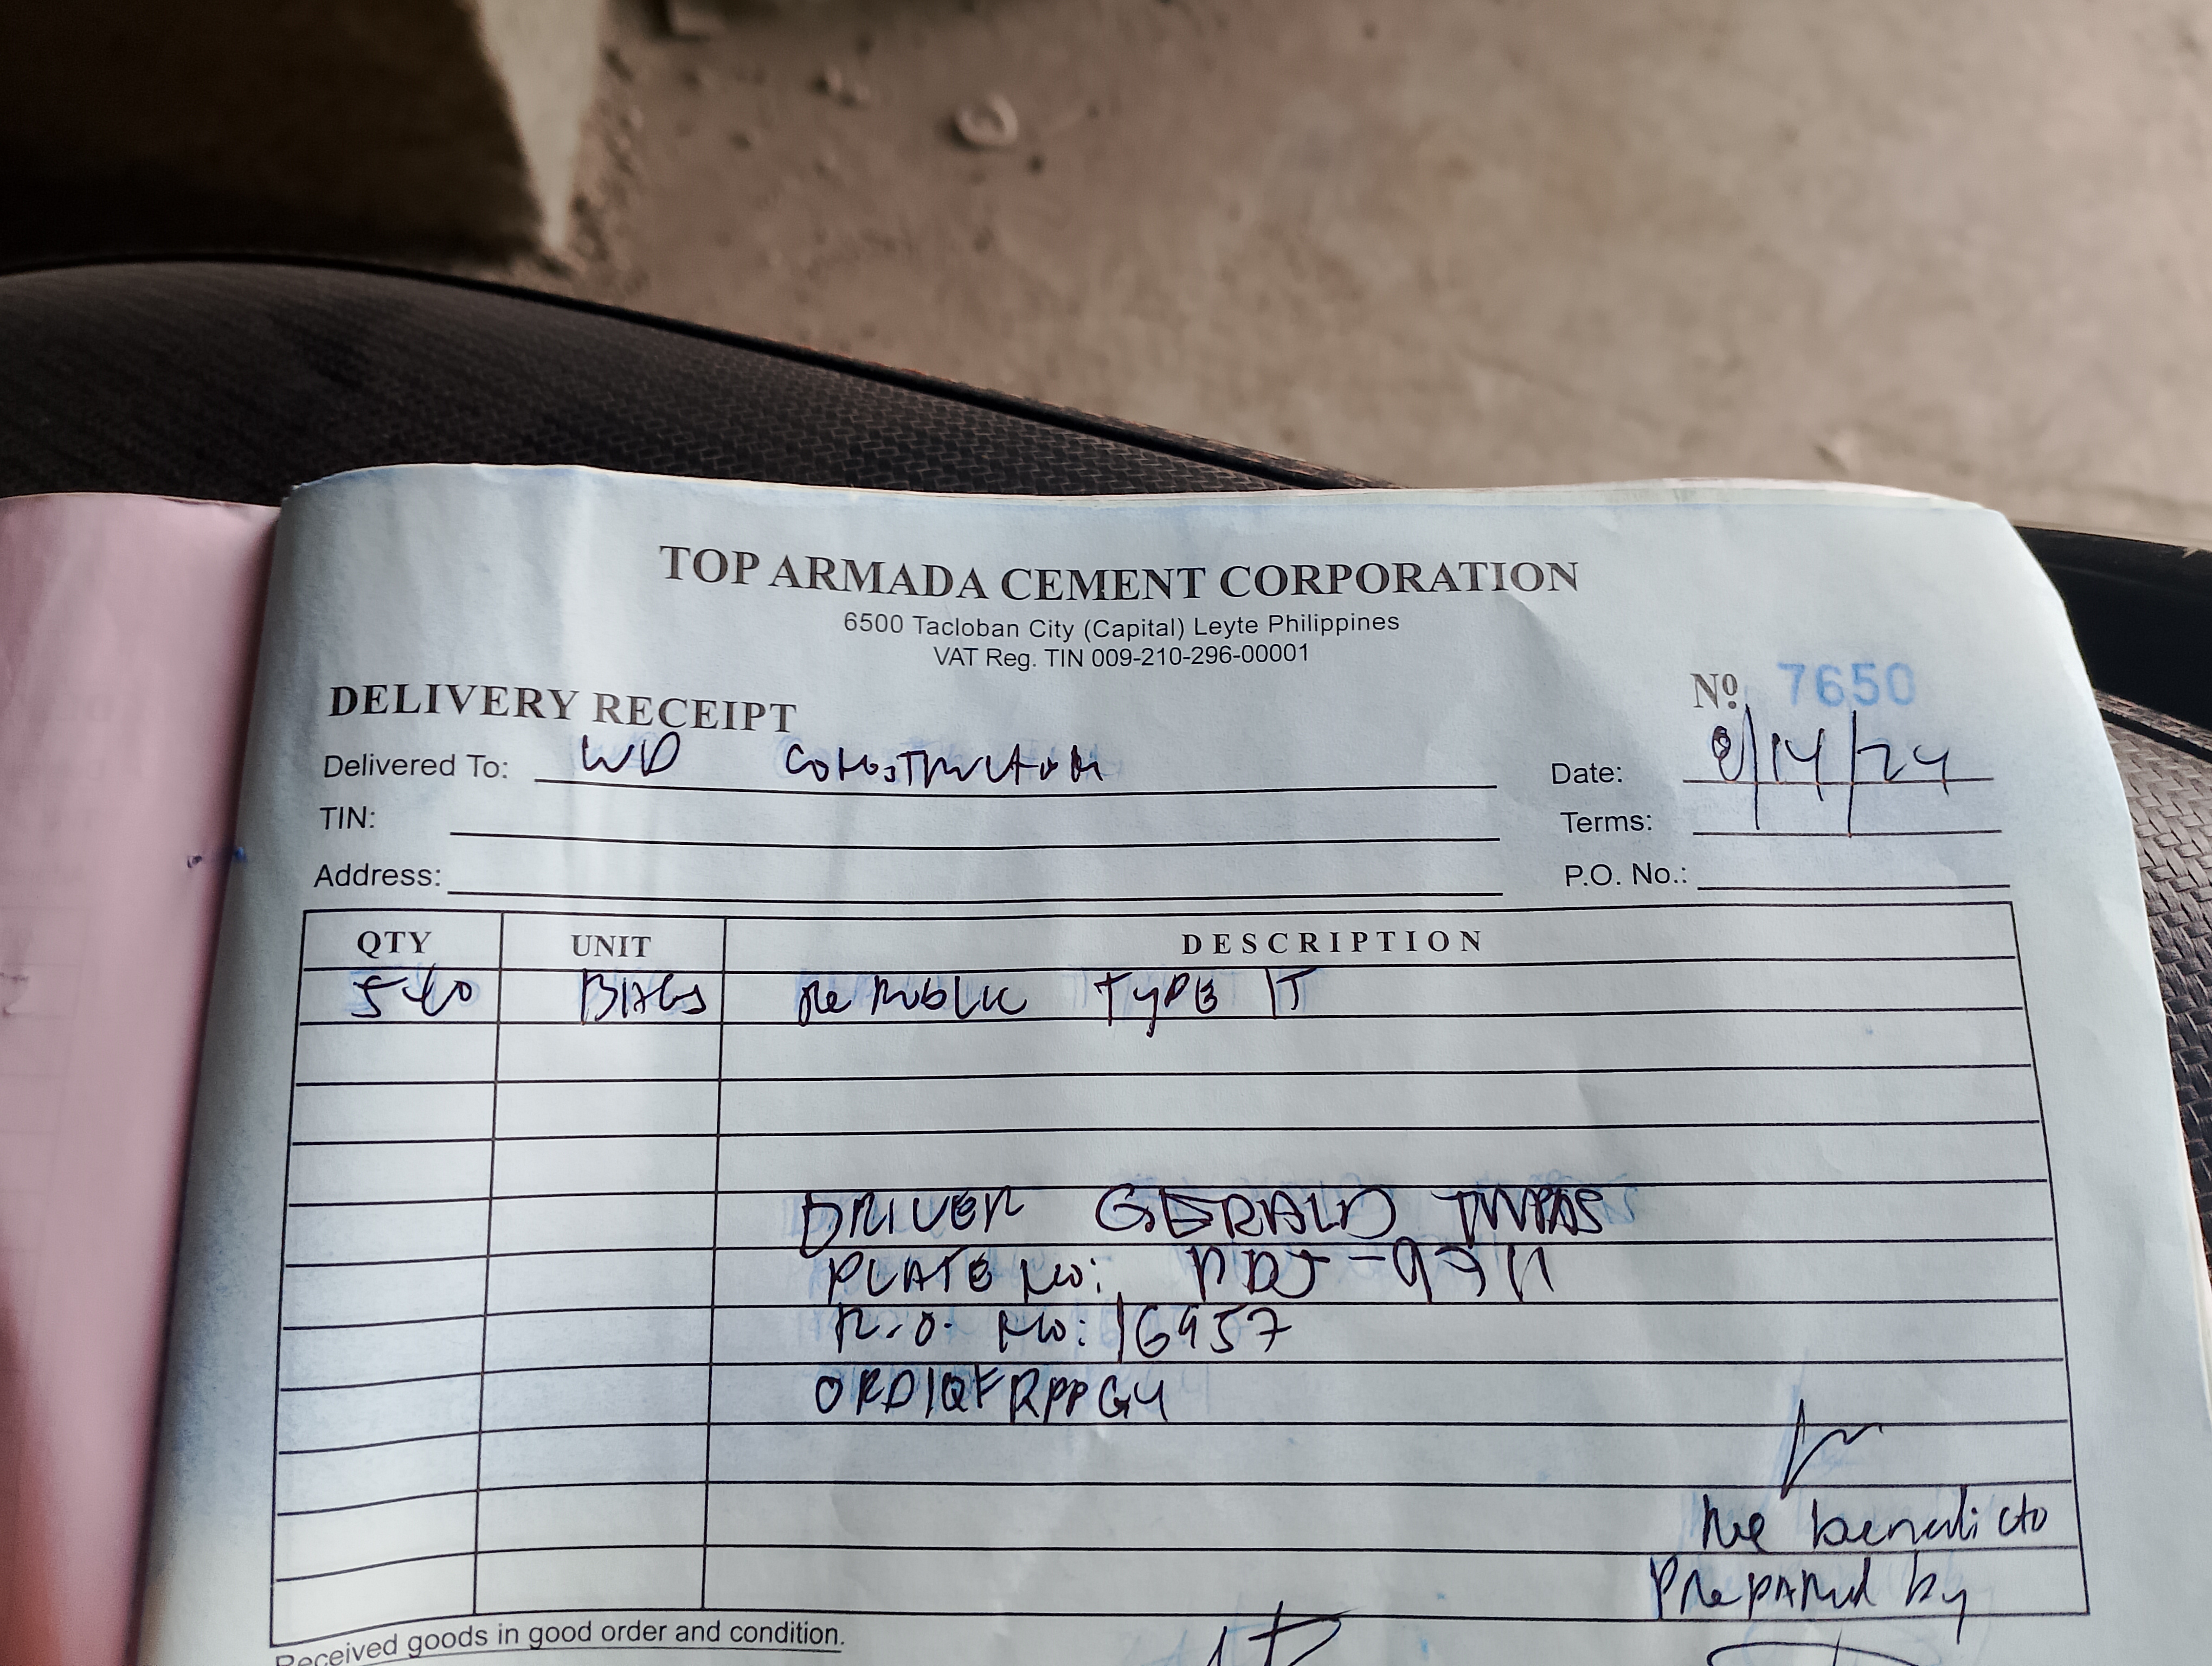 TOP ARMADA CEMENT CORPORATION
6500 Tacloban City (Capital) Leyte Philippines
VAT Reg. TIN 009-210-296-00001
DELIVERY RECEIPT
Nº 7650
Delivered To: WD Construction
Date: 8/14/24
TIN:
Terms:
Address:
P.O. No.:
QTY UNIT DESCRIPTION
540 BAGS Republic TYPE 1T
DRIVER GERALD
PLATE No:
R.O. No: 16957
ORD1QFRPPG4
benedicto
Prepared by
Received goods in good order and condition.